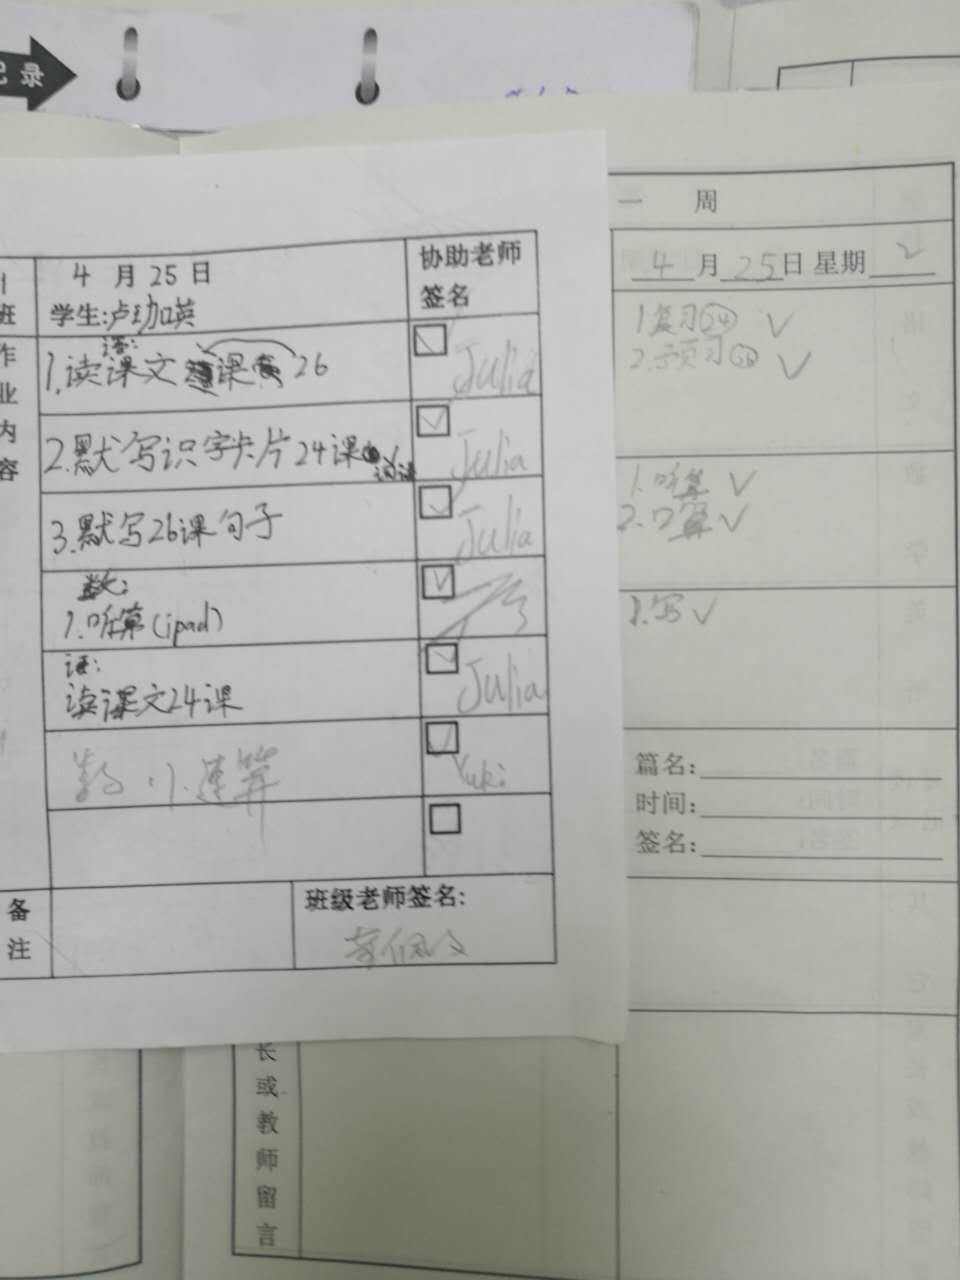 记录
一 周
4 月 25 日
协助老师
签名
学生:卢玏英
班
作
业
内
容
语:
1.读课文 课 26
Julia
2.默写识字卡片24课
Julia
3.默写26课句子
Julia
数:
1.听算(ipad)
语:
读课文24课
Julia
数 小 速算
Yuki
备
注
班级老师签名:
4月25日 星期2
1复习24 ✓
2.预习26 ✓
1.听算 ✓
2.口算 ✓
1.写 ✓
篇名:
时间:
签名:
长
或
教
师
留
言